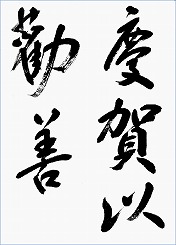 慶賀以
勸善